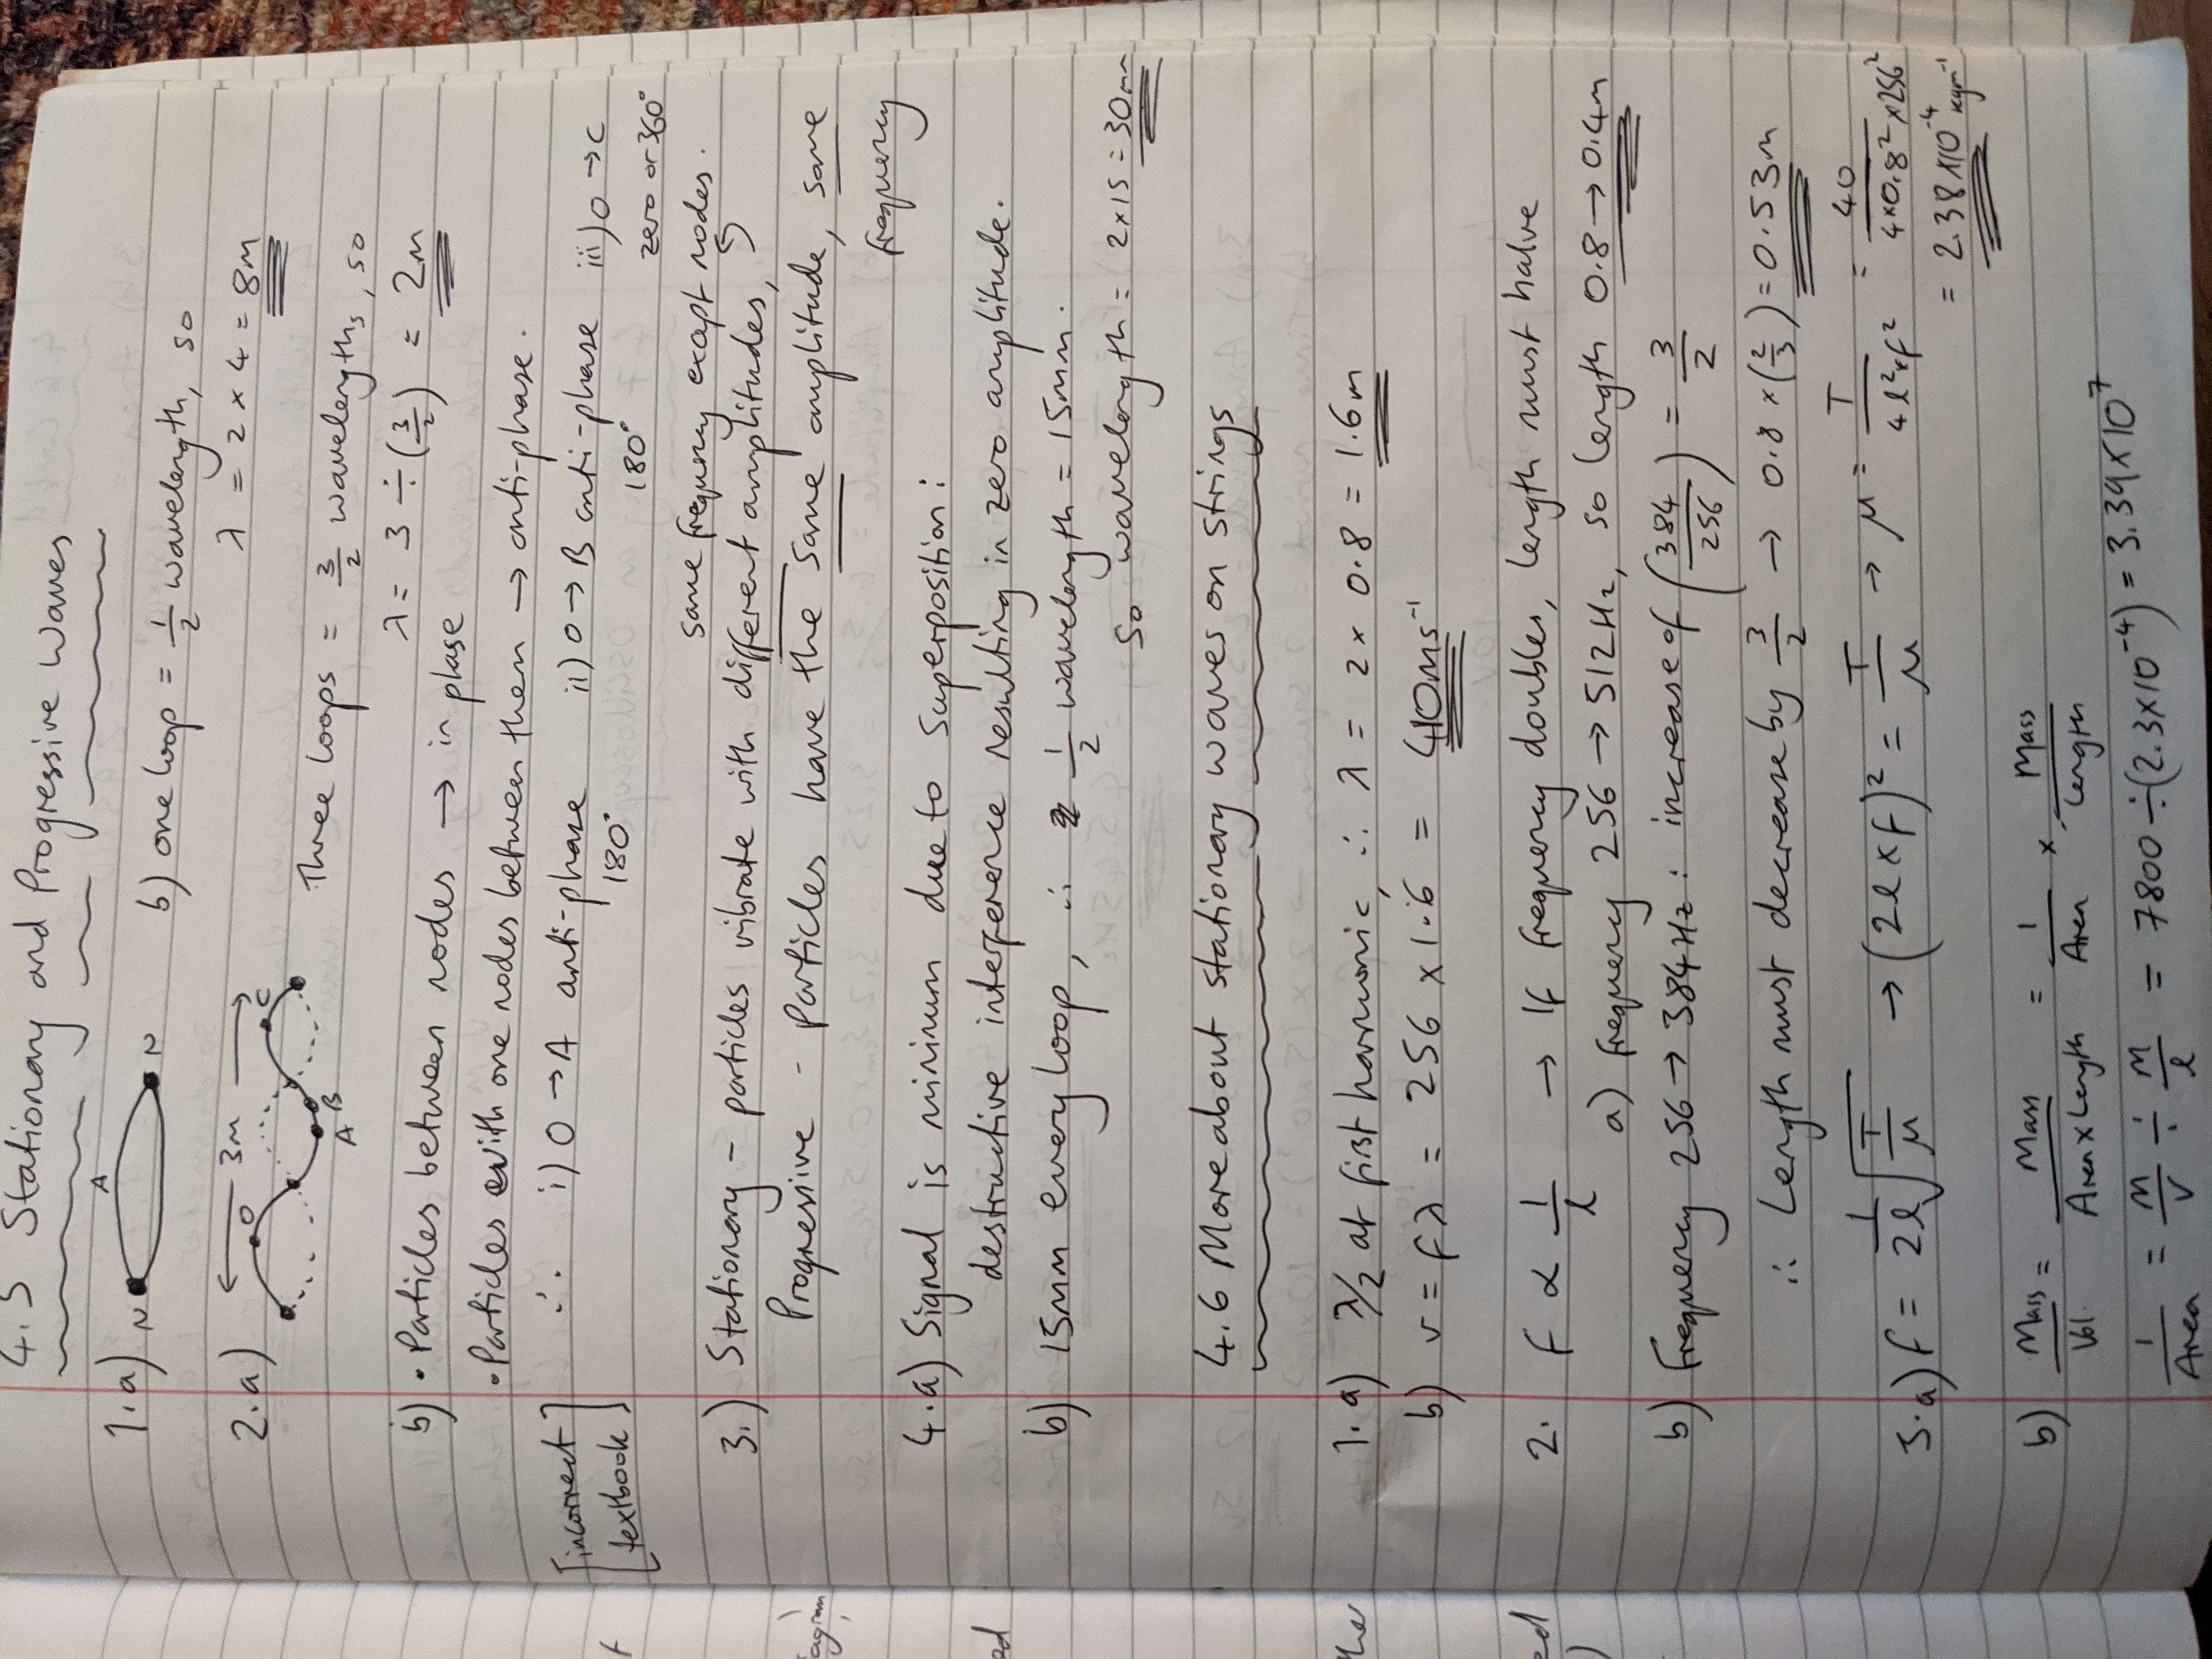 4.5 Stationary and Progressive Waves
1.a) N A N b) one loop = 1/2 wavelength, so
λ = 2 x 4 = 8m
2.a) ← 3m →
O A B C
Three loops = 3/2 wavelengths, so
λ = 3 ÷ (3/2) = 2m
b) • Particles between nodes → in phase
• Particles with one nodes between them → anti-phase.
∴ i) O → A anti-phase ii) O → B anti-phase iii) O → C
180° 180° zero or 360°
[incorrect textbook]
same frequency except nodes.
3.) Stationary - particles vibrate with different amplitudes,
Progressive - Particles have the same amplitude, same
frequency
4.a) Signal is minimum due to superposition:
destructive interference resulting in zero amplitude.
b) 15mm every loop, ∴ 1/2 wavelength = 15mm.
So wavelength = 2 x 15 = 30mm
4.6 More about stationary waves on strings
1.a) λ/2 at first harmonic, ∴ λ = 2 x 0.8 = 1.6m
b) v = fλ = 256 x 1.6 = 410ms⁻¹
2. f ∝ 1/l → If frequency doubles, length must halve
a) frequency 256 → 512Hz, so length 0.8 → 0.4m
b) frequency 256 → 384Hz: increase of (384/256) = 3/2
∴ Length must decrease by 3/2 → 0.8 x (2/3) = 0.53m
3.a) f = 1/2l √(T/μ) → (2l x f)² = T/μ → μ = T/4l²xf² = 40/4x0.8²x256²
= 2.38x10⁻⁴ kgm⁻¹
b) Mass/Vol. = Mass/Area x Length = 1/Area x Mass/Length
1/Area = M/V ÷ M/l = 7800 ÷ (2.3x10⁻⁴) = 3.39x10⁷